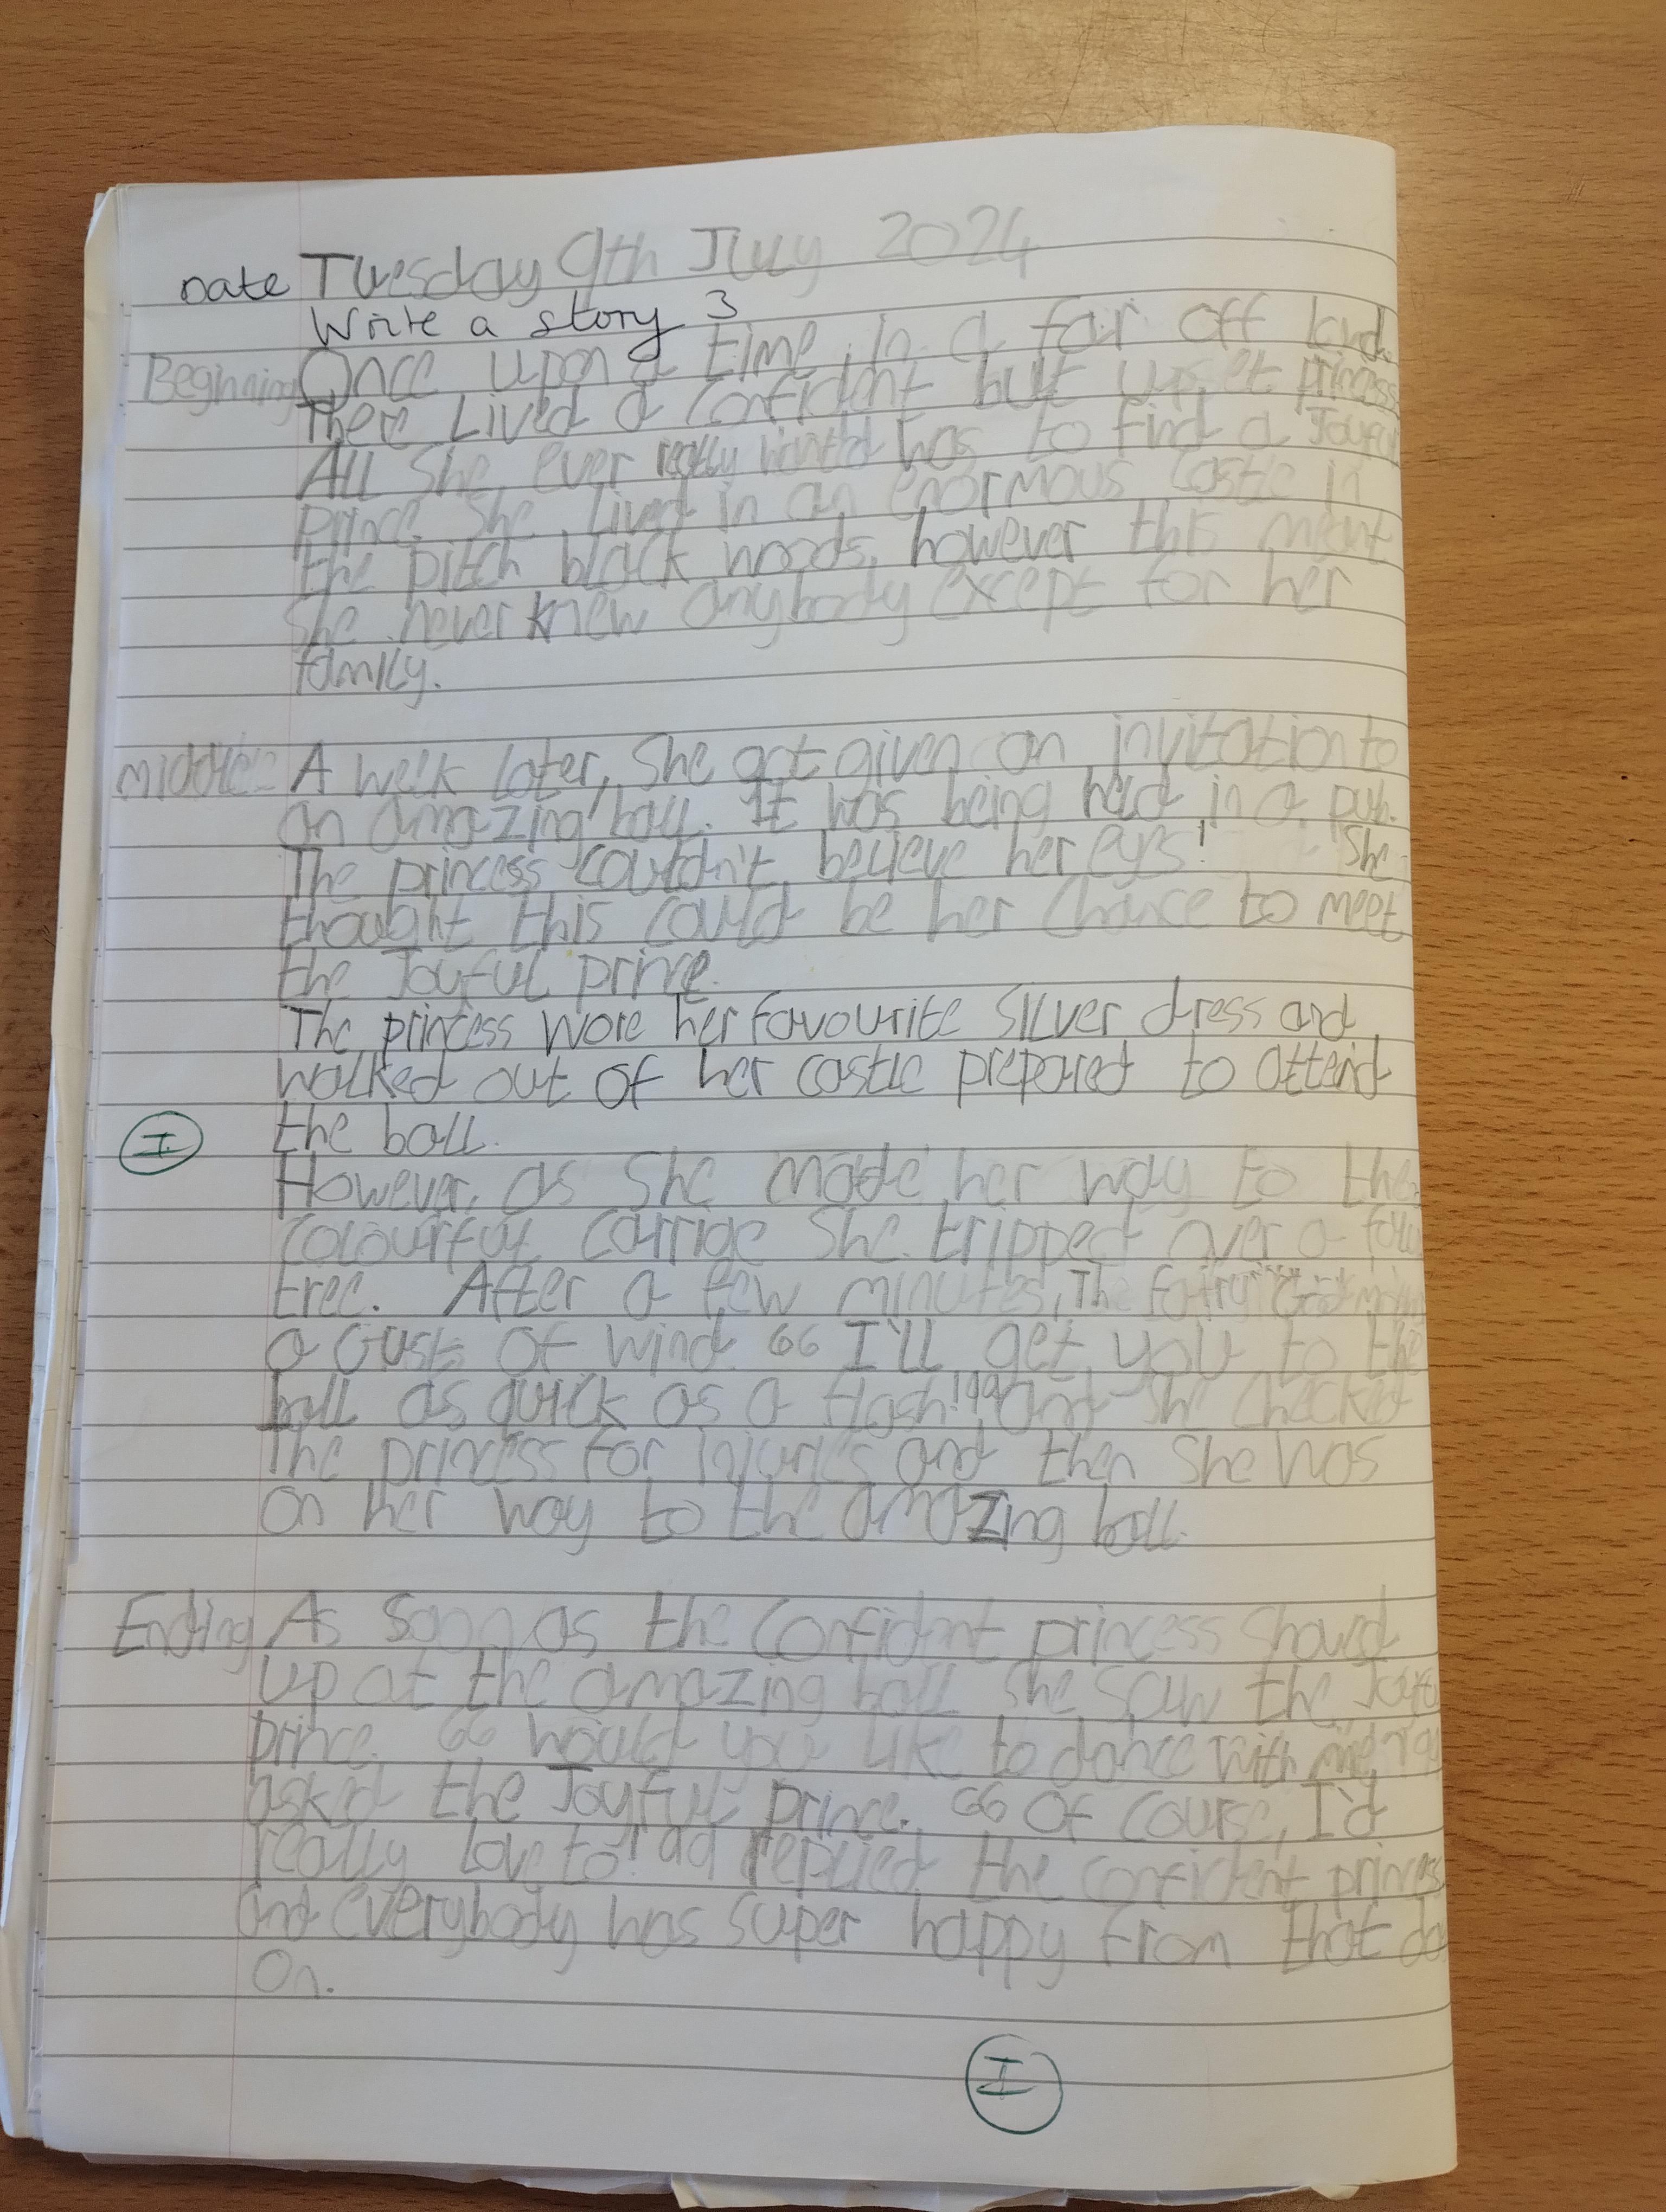 Date Tuesday 9th July 2024
Write a story 3
Beginning Once upon a time, in a far off land.
There Lived a confident but upset princess
All She ever really wanted was to find a Joyful
prince. She lived in an enormous castle in
the pitch black woods, however this meant
She never knew anybody except for her
family.
Middle: A week later, She got given an invitation to
an amazing ball. It was being held in a pub.
The princess couldn't believe her eyes! She
thought this could be her chance to meet
the Joyful prince.
The princess wore her favourite Silver dress and
walked out of her castle prepared to attend
the ball.
I
However, as She made her way to the
colourful carrige She tripped over a
tree. After a few minutes, The fairy
a Gusts of wind. 66 I'll get you to the
ball as quick as a flash! 99 and she checked
the princess for injuries and then She was
on her way to the amazing ball.
Ending As Soon as the confident princess showed
up at the amazing ball She saw the Joyful
prince. 66 would you like to dance with me
asked the Joyful prince. 66 Of course, I'd
really love to! 99 replied the confident princess
and everybody was super happy from that day
on.
I